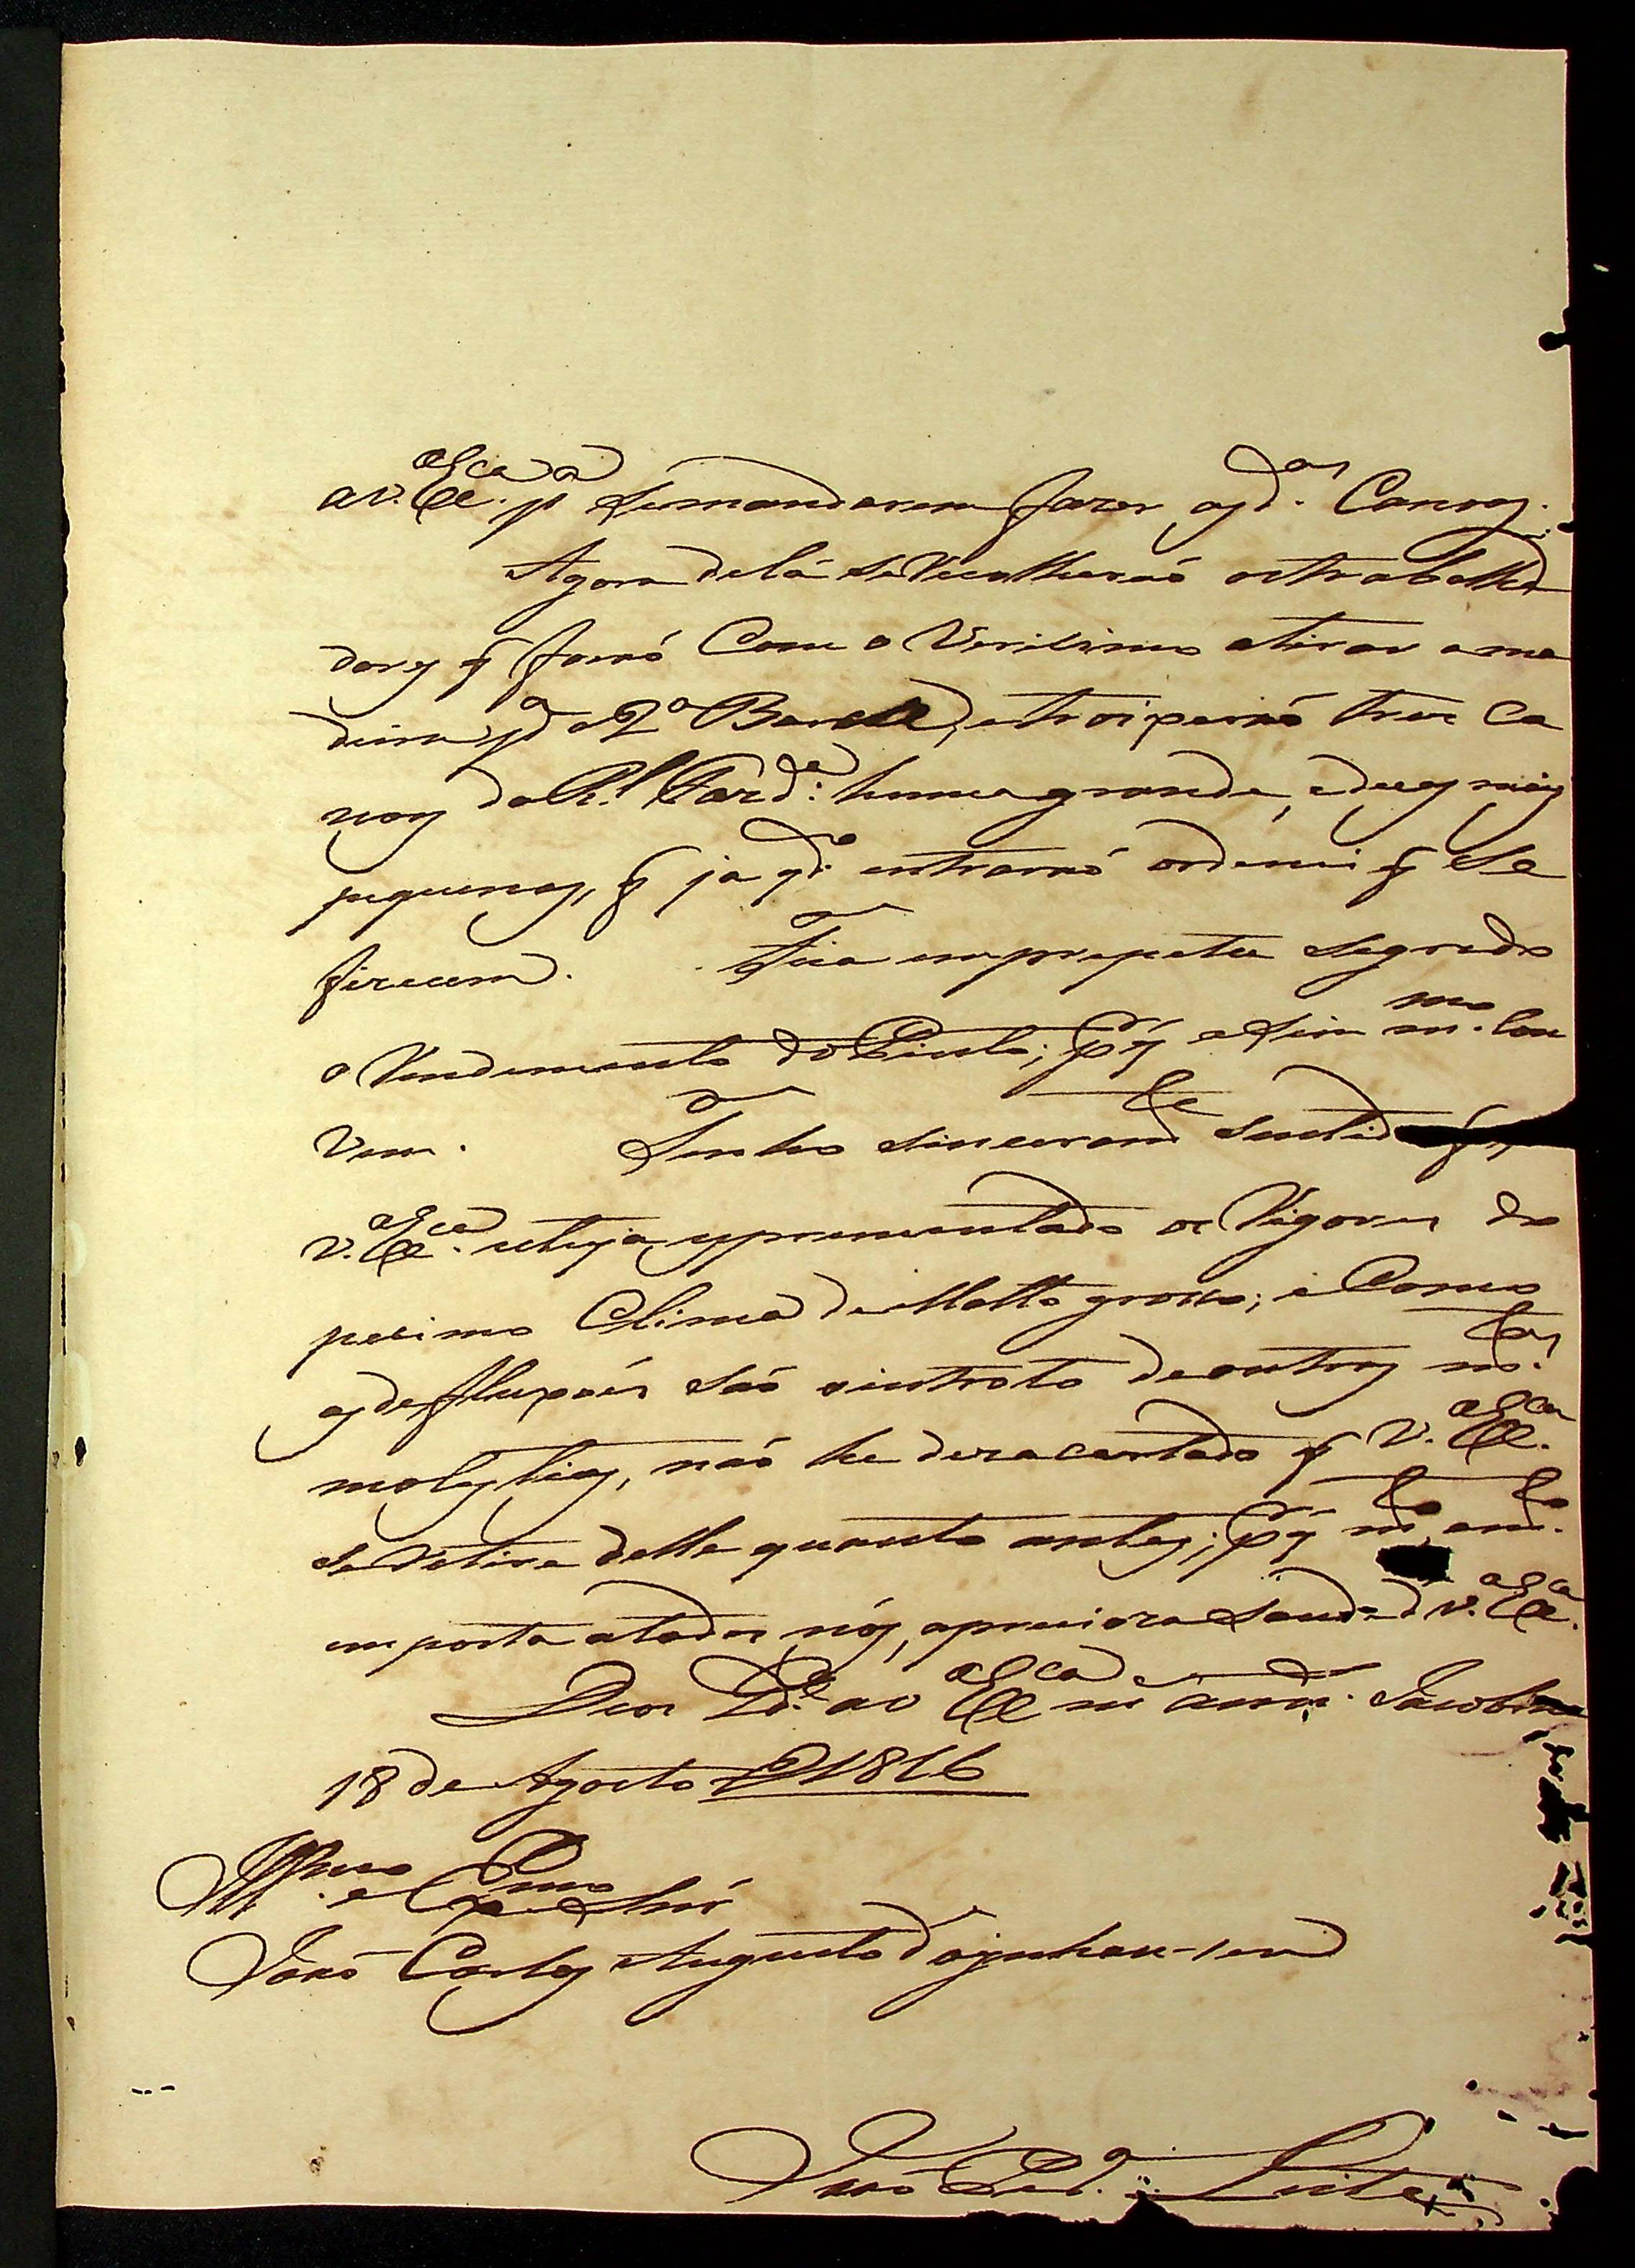 a V. Exca pa se mandarem fazer as das Canoas.
Agora de lá se recolherão os trabalha
dores q forão Com o Verissimo a tirar a ma
deira pa a 2a Barca, e troiperão tres Ca
noas da Rl Fazda: huma grande, e duas mais
pequenas, q ja qdo entrarão ordenei q Se
fizecem. Fica em prepetuo Segredo
o rendimento do Pinto; pr q asim mmo con
vem. Tenho sinceramte sentido q
V. Exca esteja exprementado os rigores do
pesimo Clima de Matto grosso; e Como
as defluxois são o introito de outras mtas
molestias, não he desacertado q V. Exca
se retire delle quanto antes; pr q mto, e mto
emporta a todos nós, a preciosa Saude d V. Exca.
Deos Gde a V Exca ms anns. Jacobina
18 de Agosto D 1816
Illmo e Exmo Snr
João Carlos Augusto d'Oyenhausend
João Leite